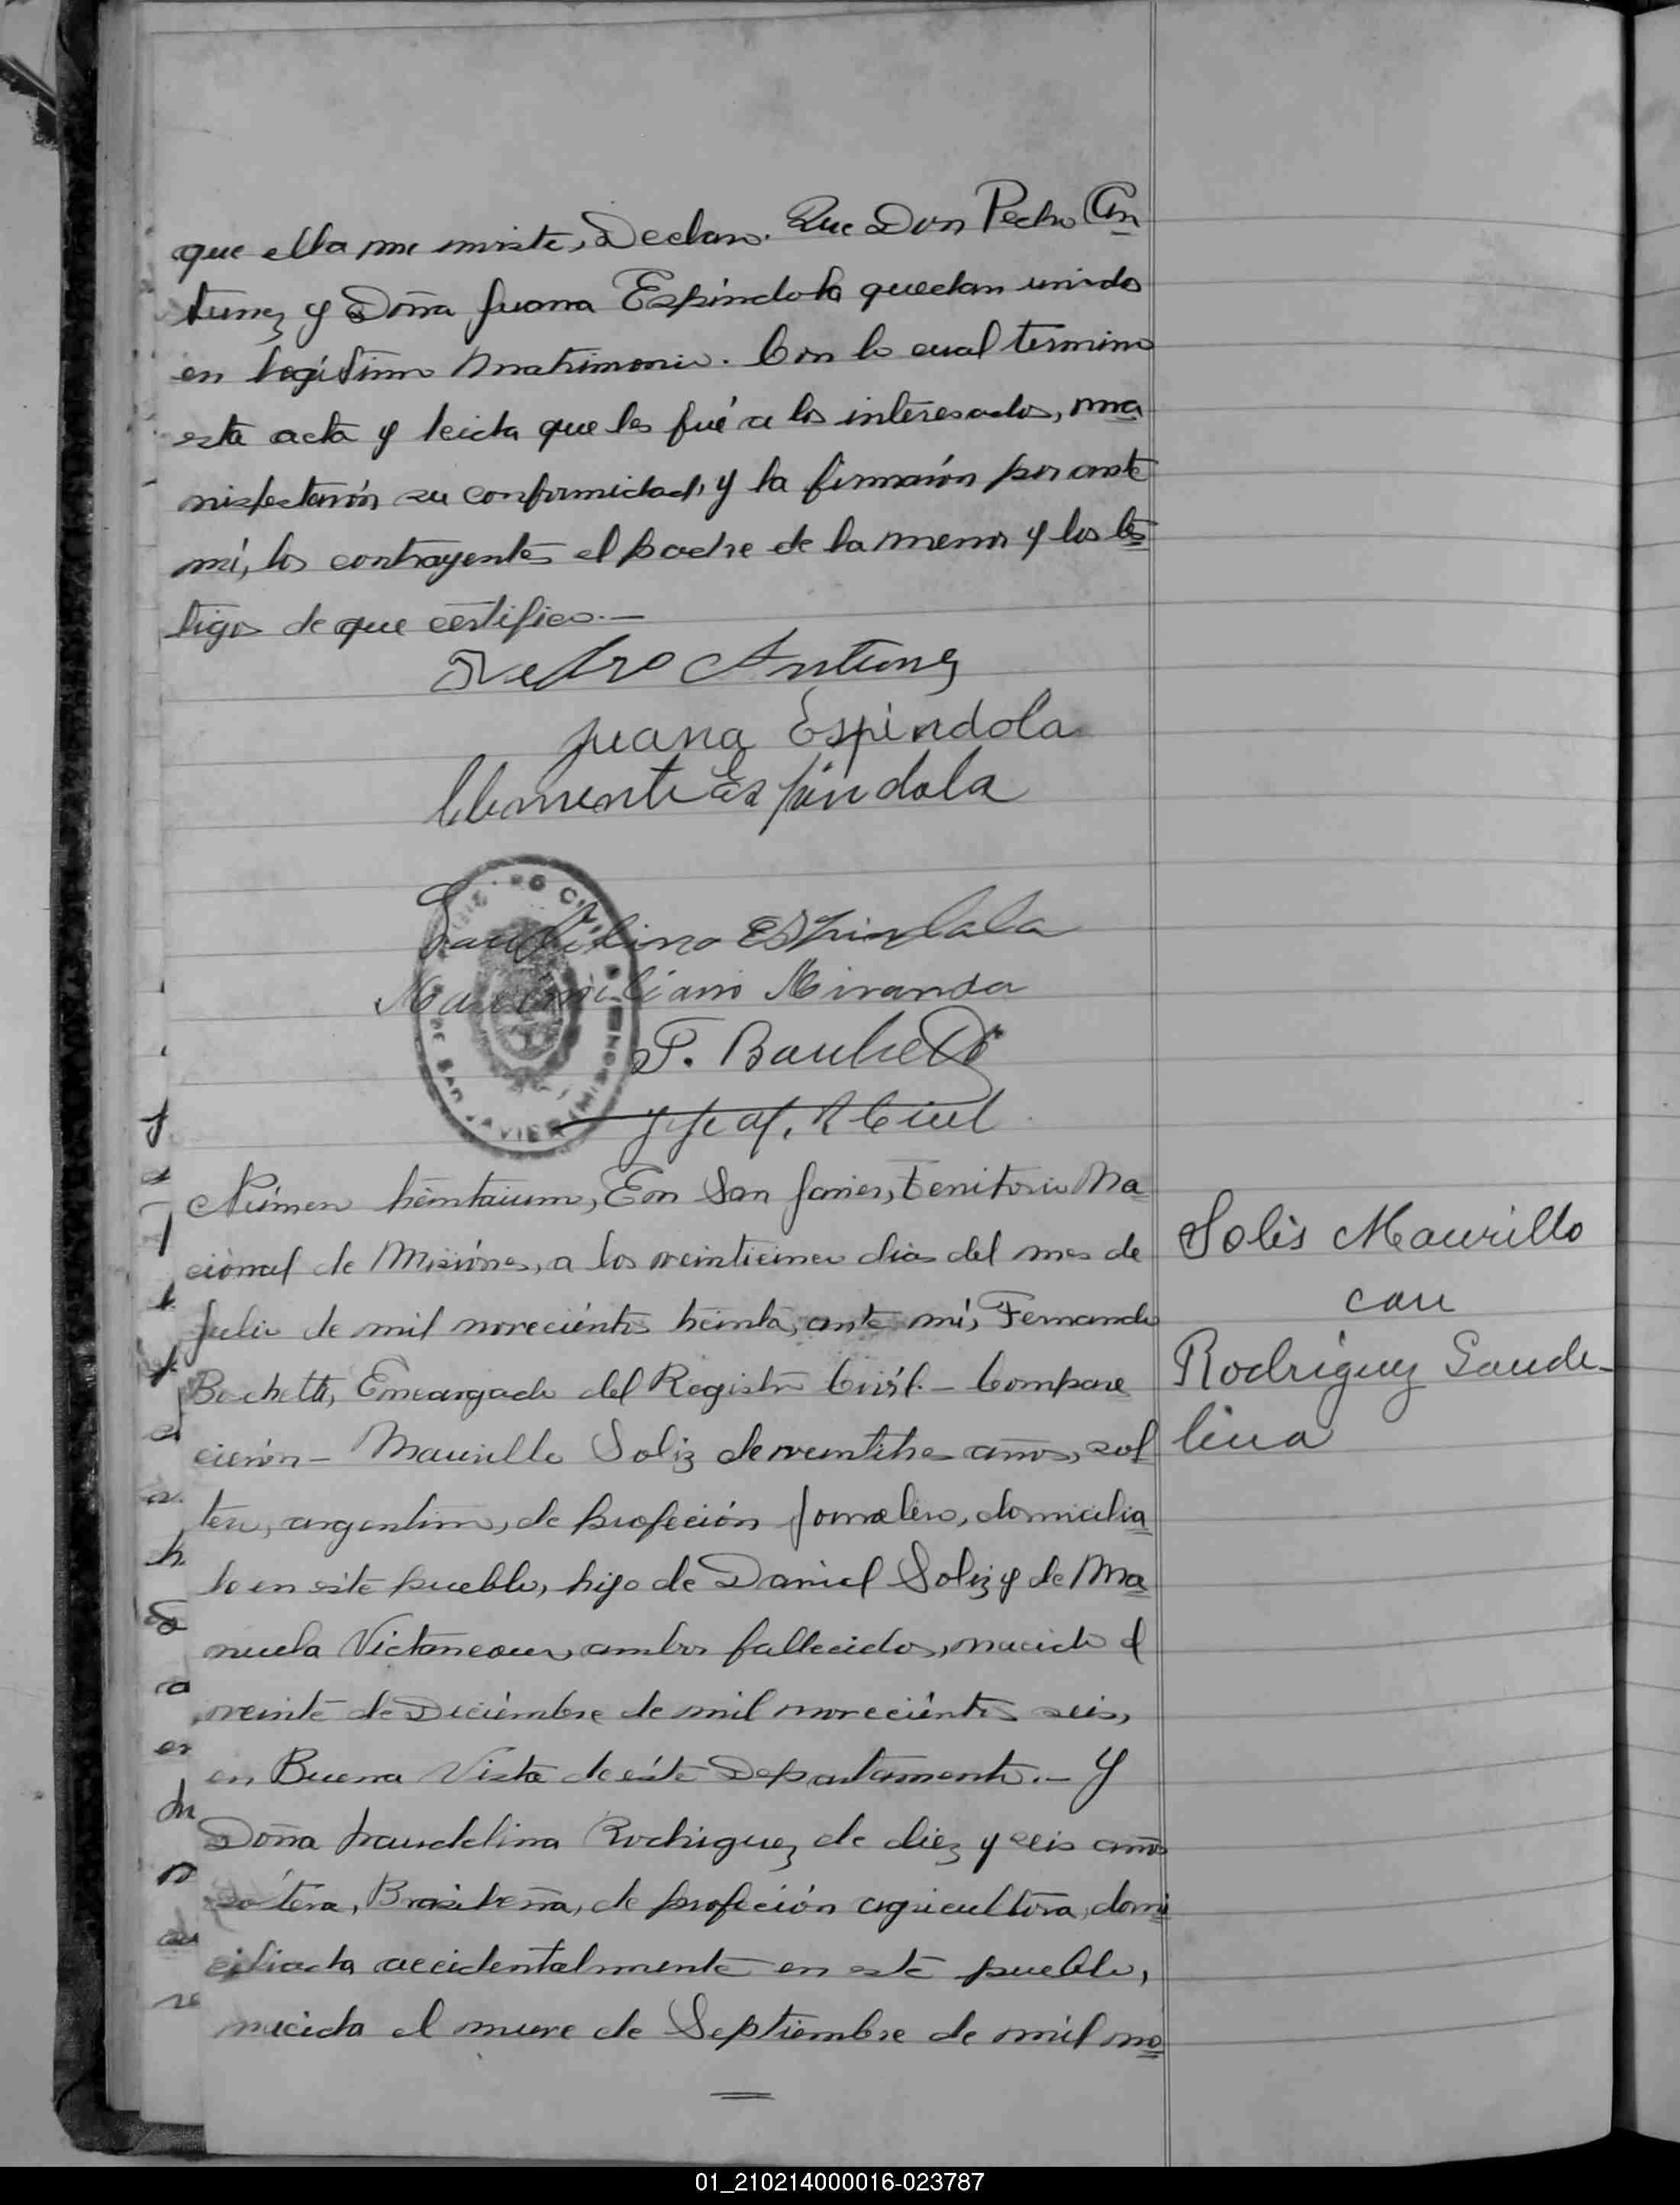 que ella me inviste, Declaro. Que Don Pedro An
tunez y Doña Juana Espíndola quedan unidos
en legítimo Matrimonio. Con lo cual termino
esta acta y leida que les fué a los interesados, ma
nisfestarón su conformidad, y la firmarón por ante
mí, los contrayentes el padre de la menor y los tes
tigos de que certifico.—
Pedro Antunez
Juana Espindola
Clemente Espíndola
Espindola
Maximiliano Miranda
F. Bacheti
Número treintaiuno, En San Javier, Territorio Na
cional de Misiónes, a los veinticinco dias del mes de
Julio de mil novecientos treinta, ante mí, Fernando
Bachetti, Encargado del Registro Civil.— Compare
cierón— Maurillo Soliz de veintitres años, sol
tero, argentino, de profeción Jornalero, domicilia
do en este pueblo, hijo de Daniel Soliz y de Ma
nuela, ambos fallecidos, nacido el
veinte de Diciémbre de mil novecientos seis,
en Buena Vista de éste Departamento.— Y
Doña Laudelina Rodriguez de diez y seis años
soltera, Brasileña, de profeción agricultora, domi
ciliada accidentalmente en este pueblo,
nacida el nueve de Septiembre de mil no
Solis Maurillo
con
Rodriguez Laude-
lina
01_210214000016-023787